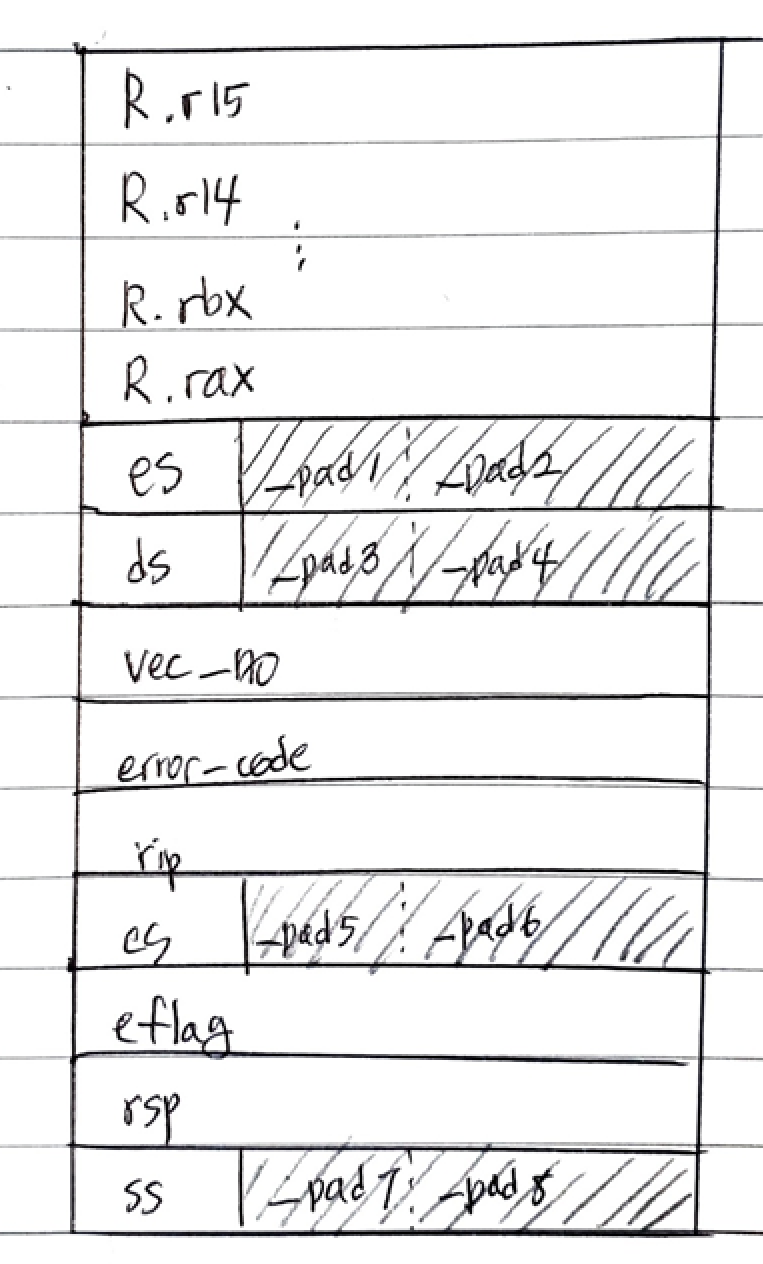 R.r15
R.r14
⋮
R.rbx
R.rax
es _pad1 _pad2
ds _pad3 _pad4
vec_no
error-code
rip
cs _pad5 _pad6
eflag
rsp
ss _pad7 _pad8